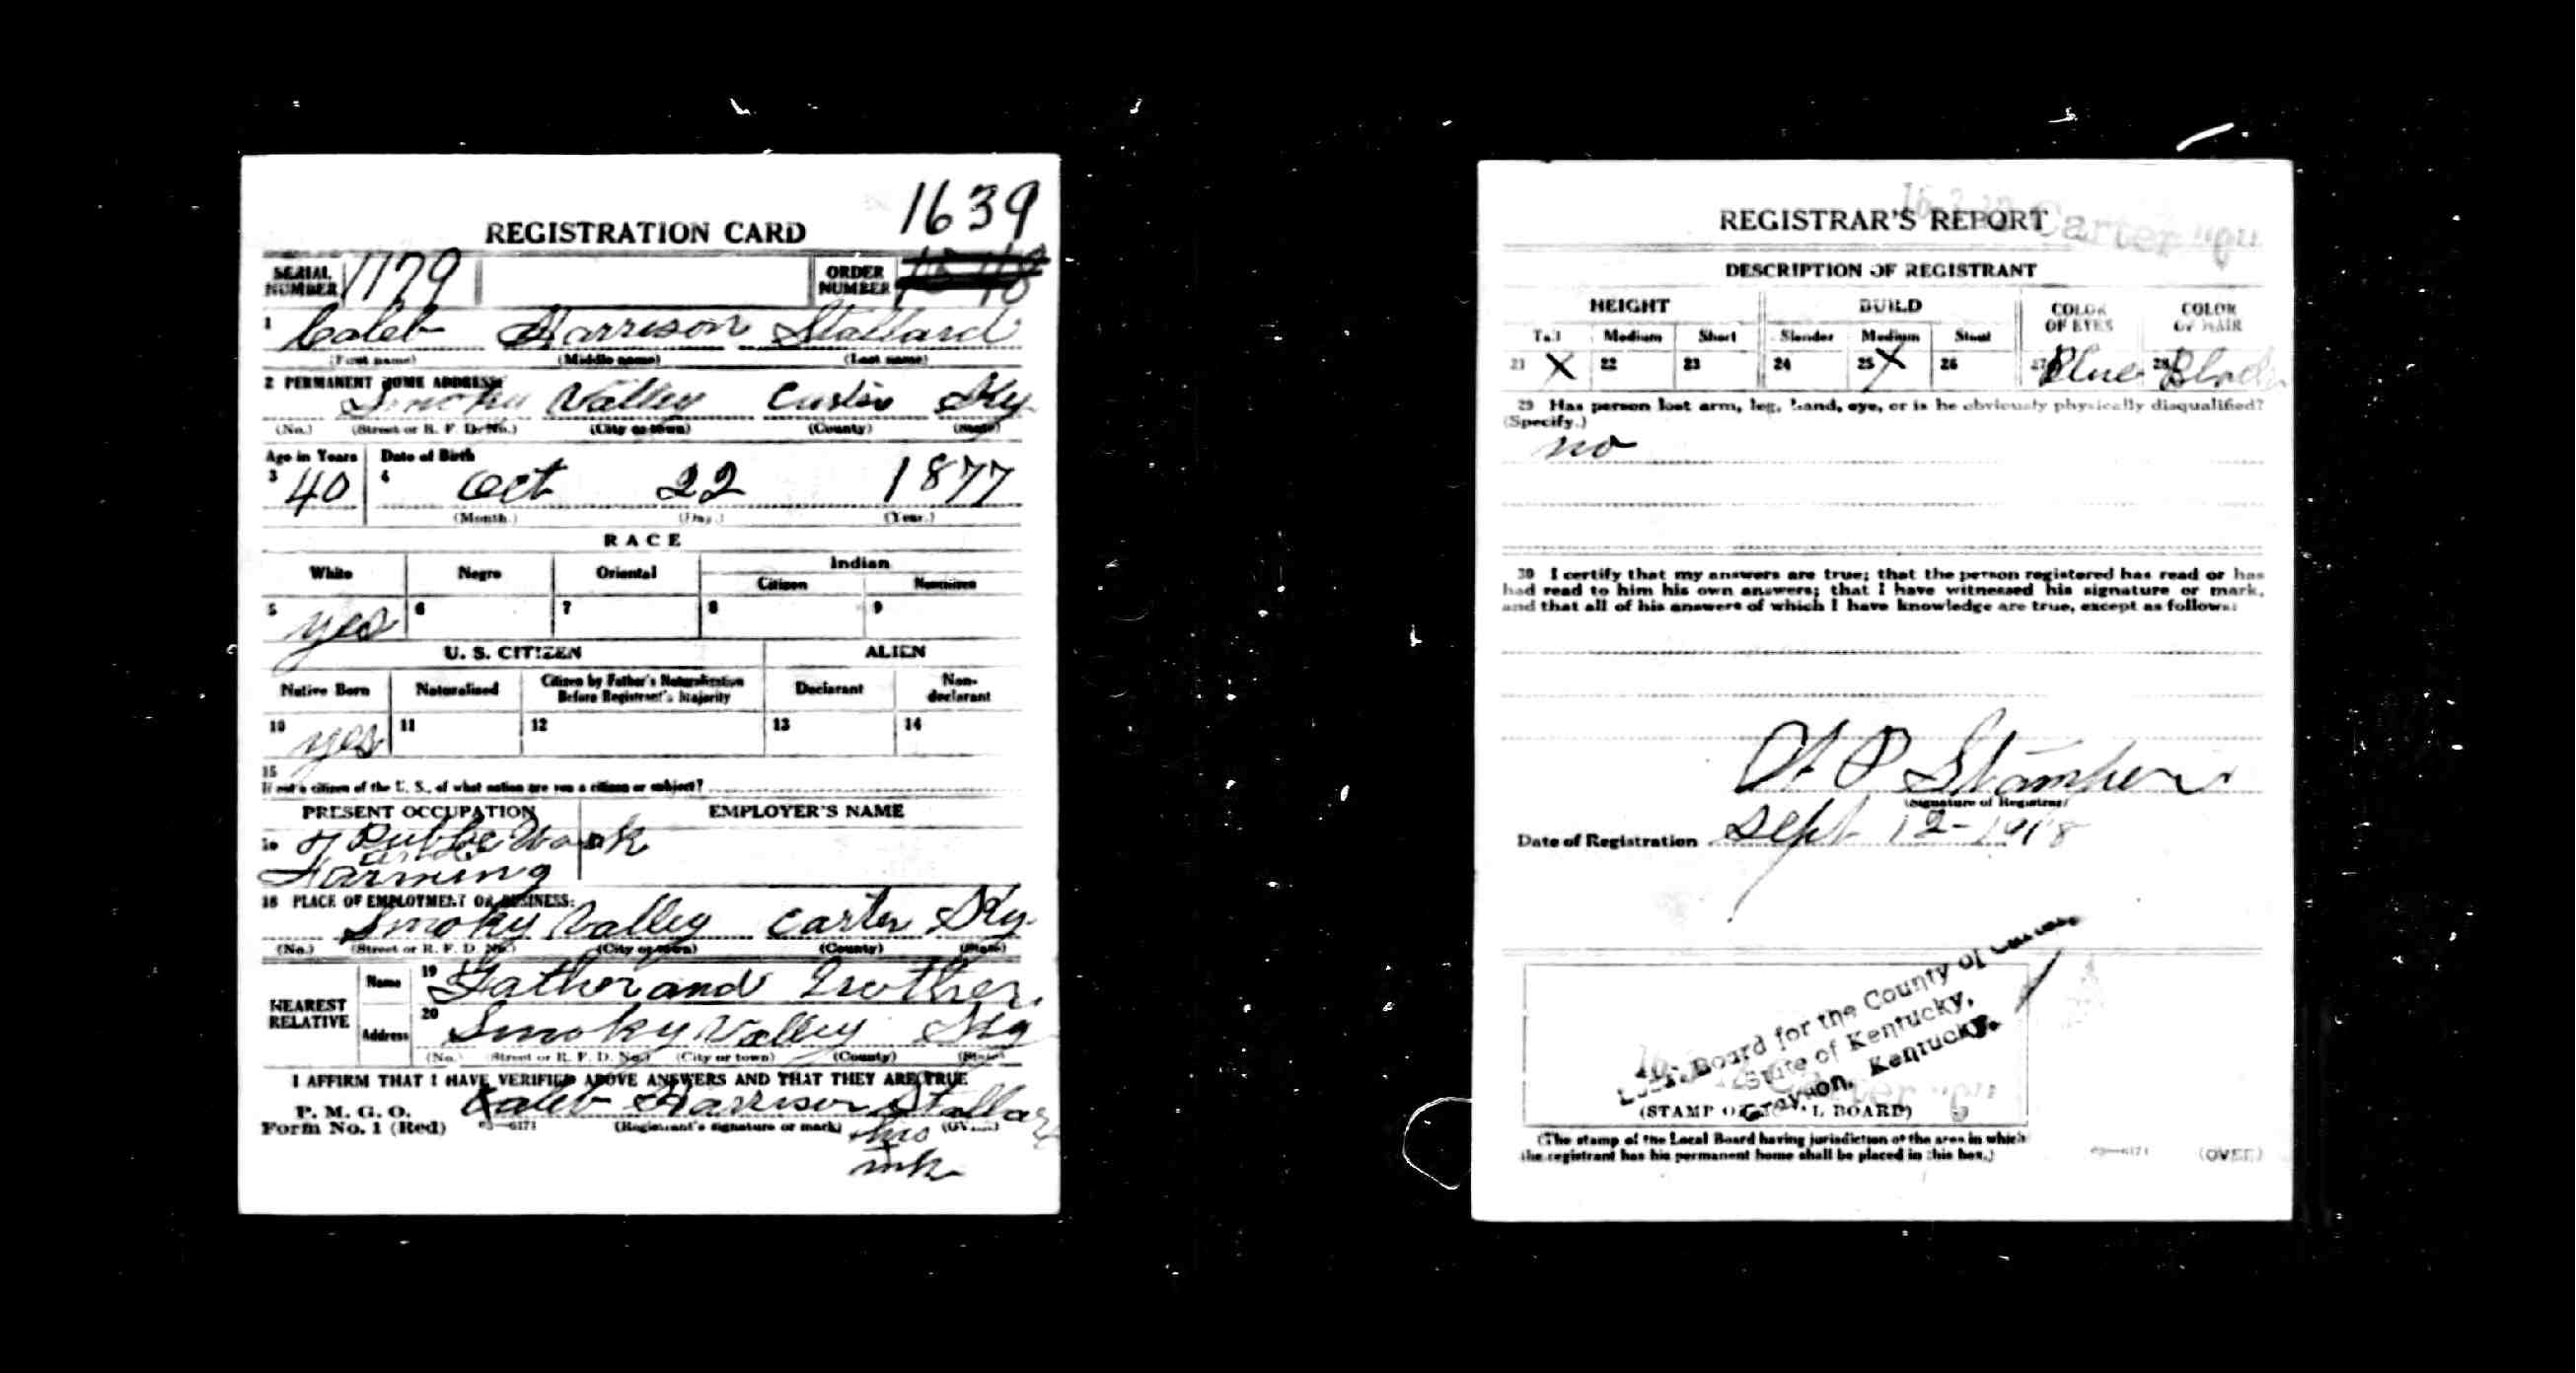 1639
REGISTRATION CARD
SERIAL NUMBER 1179 ORDER NUMBER
1 Caleb Harrison Stallard
(First name) (Middle name) (Last name)
2 PERMANENT HOME ADDRESS:
Smoky Valley Ky
(No.) (Street or R. F. D. No.) (City or town) (County) (State)
Age in Years Date of Birth
3 40 4 Oct 22 1877
(Month.) (Day.) (Year.)
RACE
White Negro Oriental Indian
Citizen Noncitizen
5 yes 6 7 8 9
U. S. CITIZEN ALIEN
Native Born Naturalized Citizen by Father's Naturalization Before Registrant's Majority Declarant Non-declarant
10 yes 11 12 13 14
15
If not a citizen of the U. S., of what nation are you a citizen or subject?
PRESENT OCCUPATION EMPLOYER'S NAME
Work
and
Farming
18 PLACE OF EMPLOYMENT OR BUSINESS:
Smoky Valley Carter Ky.
(No.) (Street or R. F. D. No.) (City or town) (County) (State)
NEAREST RELATIVE
Name 19 Father and Mother
Address 20 Smoky Valley Ky
(No.) (Street or R. F. D. No.) (City or town) (County) (State)
I AFFIRM THAT I HAVE VERIFIED ABOVE ANSWERS AND THAT THEY ARE TRUE
P. M. G. O.
Form No. 1 (Red) Caleb Harrison Stallard
03-6171 (Registrant's signature or mark) (OVER)
his
x
mk
REGISTRAR'S REPORT
Carter "0"
DESCRIPTION OF REGISTRANT
HEIGHT BUILD COLOR OF EYES COLOR OF HAIR
Tall Medium Short Slender Medium Stout
21 X 22 23 24 25 X 26 27 Blue 28 Black
29 Has person lost arm, leg, hand, eye, or is he obviously physically disqualified?
(Specify.)
no
30 I certify that my answers are true; that the person registered has read or has
had read to him his own answers; that I have witnessed his signature or mark,
and that all of his answers of which I have knowledge are true, except as follows:
Stamper
(Signature of Registrar)
Date of Registration Sept 12-1918
Local Board for the County of Carter,
State of Kentucky,
Grayson, Kentucky.
(STAMP OF LOCAL BOARD)
(The stamp of the Local Board having jurisdiction of the area in which
the registrant has his permanent home shall be placed in this box.)
03-6171 (OVER)